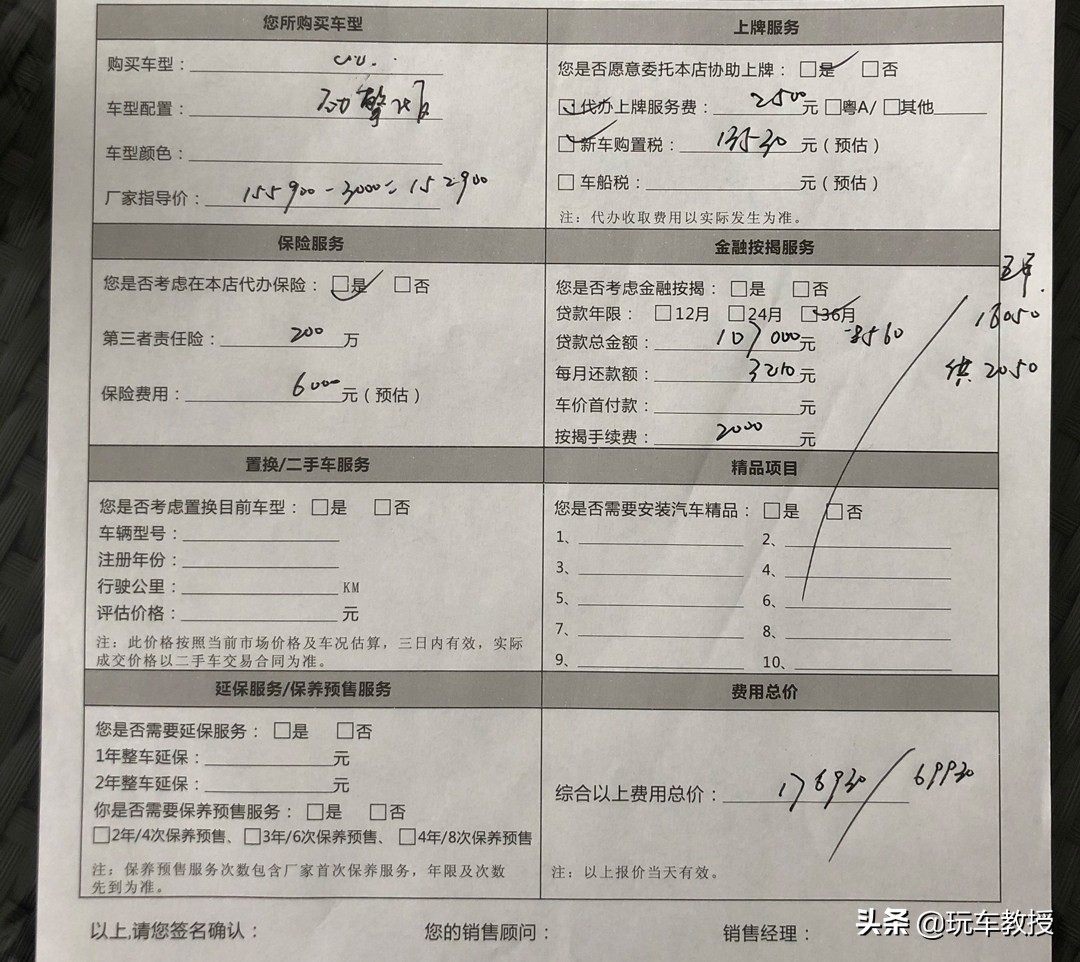 您所购买车型
购买车型：
车型配置：劲擎版
车型颜色：
厂家指导价：155900-3000=152900
上牌服务
您是否愿意委托本店协助上牌：□是 □否
□代办上牌服务费：2500元 □粤A/ □其他
□新车购置税：13530元（预估）
□车船税：元（预估）
注：代办收取费用以实际发生为准。
保险服务
您是否考虑在本店代办保险：□是 □否
第三者责任险：200万
保险费用：6000元（预估）
金融按揭服务
您是否考虑金融按揭：□是 □否
贷款年限：□12月 □24月 □36月
贷款总金额：107000元 -8560
每月还款额：3210元
车价首付款：元
按揭手续费：2000元
五年.
18050
供2050
置换/二手车服务
您是否考虑置换目前车型：□是 □否
车辆型号：
注册年份：
行驶公里：KM
评估价格：元
注：此价格按照当前市场价格及车况估算，三日内有效，实际
成交价格以二手车交易合同为准。
精品项目
您是否需要安装汽车精品：□是 □否
1、 2、
3、 4、
5、 6、
7、 8、
9、 10、
延保服务/保养预售服务
您是否需要延保服务：□是 □否
1年整车延保：元
2年整车延保：元
你是否需要保养预售服务：□是 □否
□2年/4次保养预售、□3年/6次保养预售、□4年/8次保养预售
注：保养预售服务次数包含厂家首次保养服务，年限及次数
先到为准。
费用总价
综合以上费用总价：176930/69930
注：以上报价当天有效。
以上,请您签名确认：
您的销售顾问：
销售经理：
头条 @玩车教授